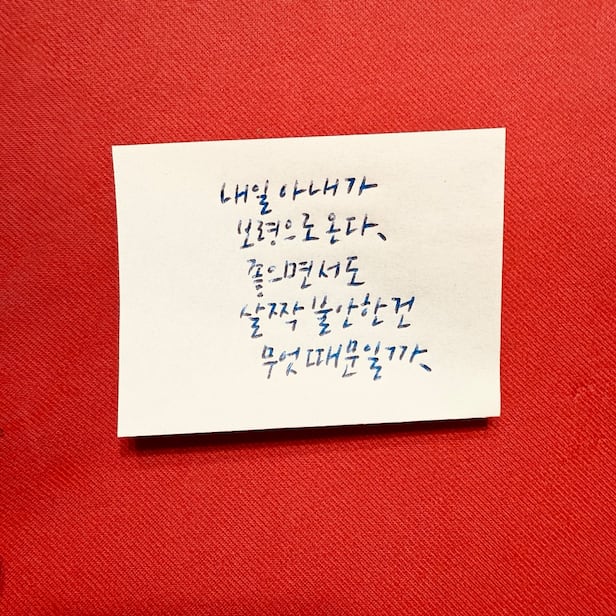 내일 아내가
보령으로 온다.
좋으면서도
살짝 불안한 건
무엇 때문일까.